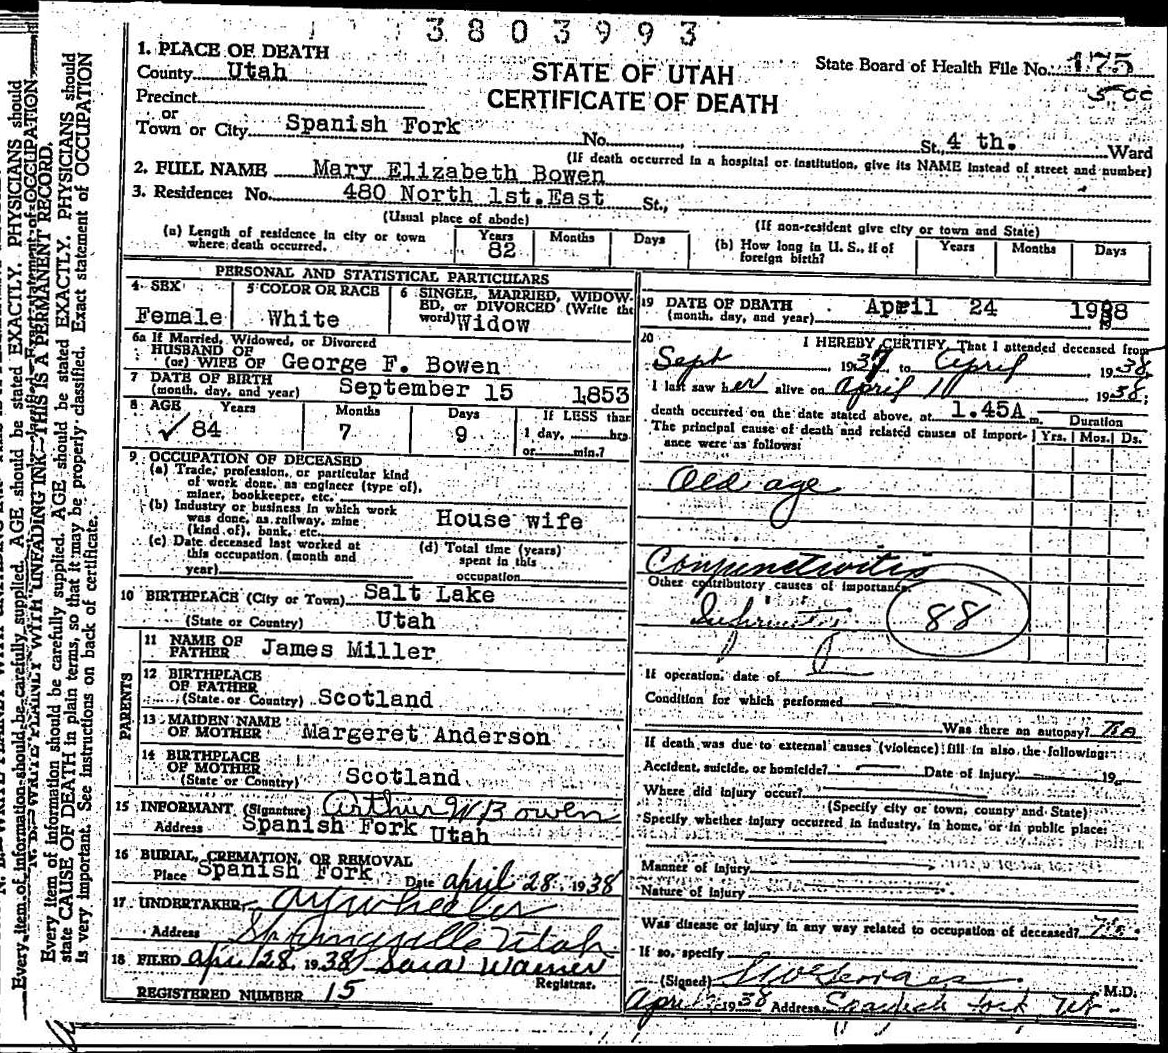 3803993
1. PLACE OF DEATH
County Utah
STATE OF UTAH
CERTIFICATE OF DEATH
State Board of Health File No. 175
Precinct
or
Town or City Spanish Fork No. St. 4 th. Ward
(If death occurred in a hospital or institution, give its NAME instead of street and number)
2. FULL NAME Mary Elizabeth Bowen
3. Residence: No. 480 North 1st. East St.,
(Usual place of abode) (If non-resident give city or town and State)
(a) Length of residence in city or town where death occurred. Years 82 Months Days
(b) How long in U. S., if of foreign birth? Years Months Days
PERSONAL AND STATISTICAL PARTICULARS
4 SEX Female
5 COLOR OR RACE White
6 SINGLE, MARRIED, WIDOWED, or DIVORCED (Write the word) Widow
6a If Married, Widowed, or Divorced
HUSBAND OF
(or) WIFE OF George F. Bowen
7 DATE OF BIRTH
(month, day, and year) September 15 1853
8 AGE Years Months Days If LESS than
✓ 84 7 9 1 day, hrs.
or min.?
9 OCCUPATION OF DECEASED
(a) Trade, profession, or particular kind
of work done, as engineer (type of),
miner, bookkeeper, etc.
(b) Industry or business in which work
was done, as railway, mine
(kind of), bank, etc. House wife
(c) Date deceased last worked at
this occupation (month and
year)
(d) Total time (years)
spent in this
occupation
10 BIRTHPLACE (City or Town) Salt Lake
(State or Country) Utah
PARENTS
11 NAME OF
FATHER James Miller
12 BIRTHPLACE
OF FATHER
(State or Country) Scotland
13 MAIDEN NAME
OF MOTHER Margeret Anderson
14 BIRTHPLACE
OF MOTHER
(State or Country) Scotland
15 INFORMANT (Signature) Arthur W Bowen
Address Spanish Fork Utah
16 BURIAL, CREMATION, OR REMOVAL
Place Spanish Fork Date april 28 1938
17 UNDERTAKER A Y Wheeler
Address Springville Utah
18 FILED april 28, 1938 Sara Warner
Registrar.
REGISTERED NUMBER 15
19 DATE OF DEATH
(month, day, and year) April 24 1938
20 I HEREBY CERTIFY, That I attended deceased from
Sept 1937, to April 1938
I last saw her alive on April 1938;
death occurred on the date stated above, at 1.45A m.
The principal cause of death and related causes of importance were as follows:
Duration
Yrs. Mos. Ds.
Old age
Conjunctivitis
Other contributory causes of importance:
88
If operation, date of
Condition for which performed
Was there an autopsy? no
If death was due to external causes (violence) fill in also the following:
Accident, suicide, or homicide? Date of injury 19
Where did injury occur?
(Specify city or town, county and State)
Specify whether injury occurred in industry, in home, or in public place:
Manner of injury
Nature of injury
Was disease or injury in any way related to occupation of deceased? no
If so, specify
(Signed) M.D.
April 1938 Address Spanish Fork, Ut
Every item of information should be carefully supplied. AGE should be stated EXACTLY. PHYSICIANS should
state CAUSE OF DEATH in plain terms, so that it may be properly classified. Exact statement of OCCUPATION
is very important. See instructions on back of certificate.